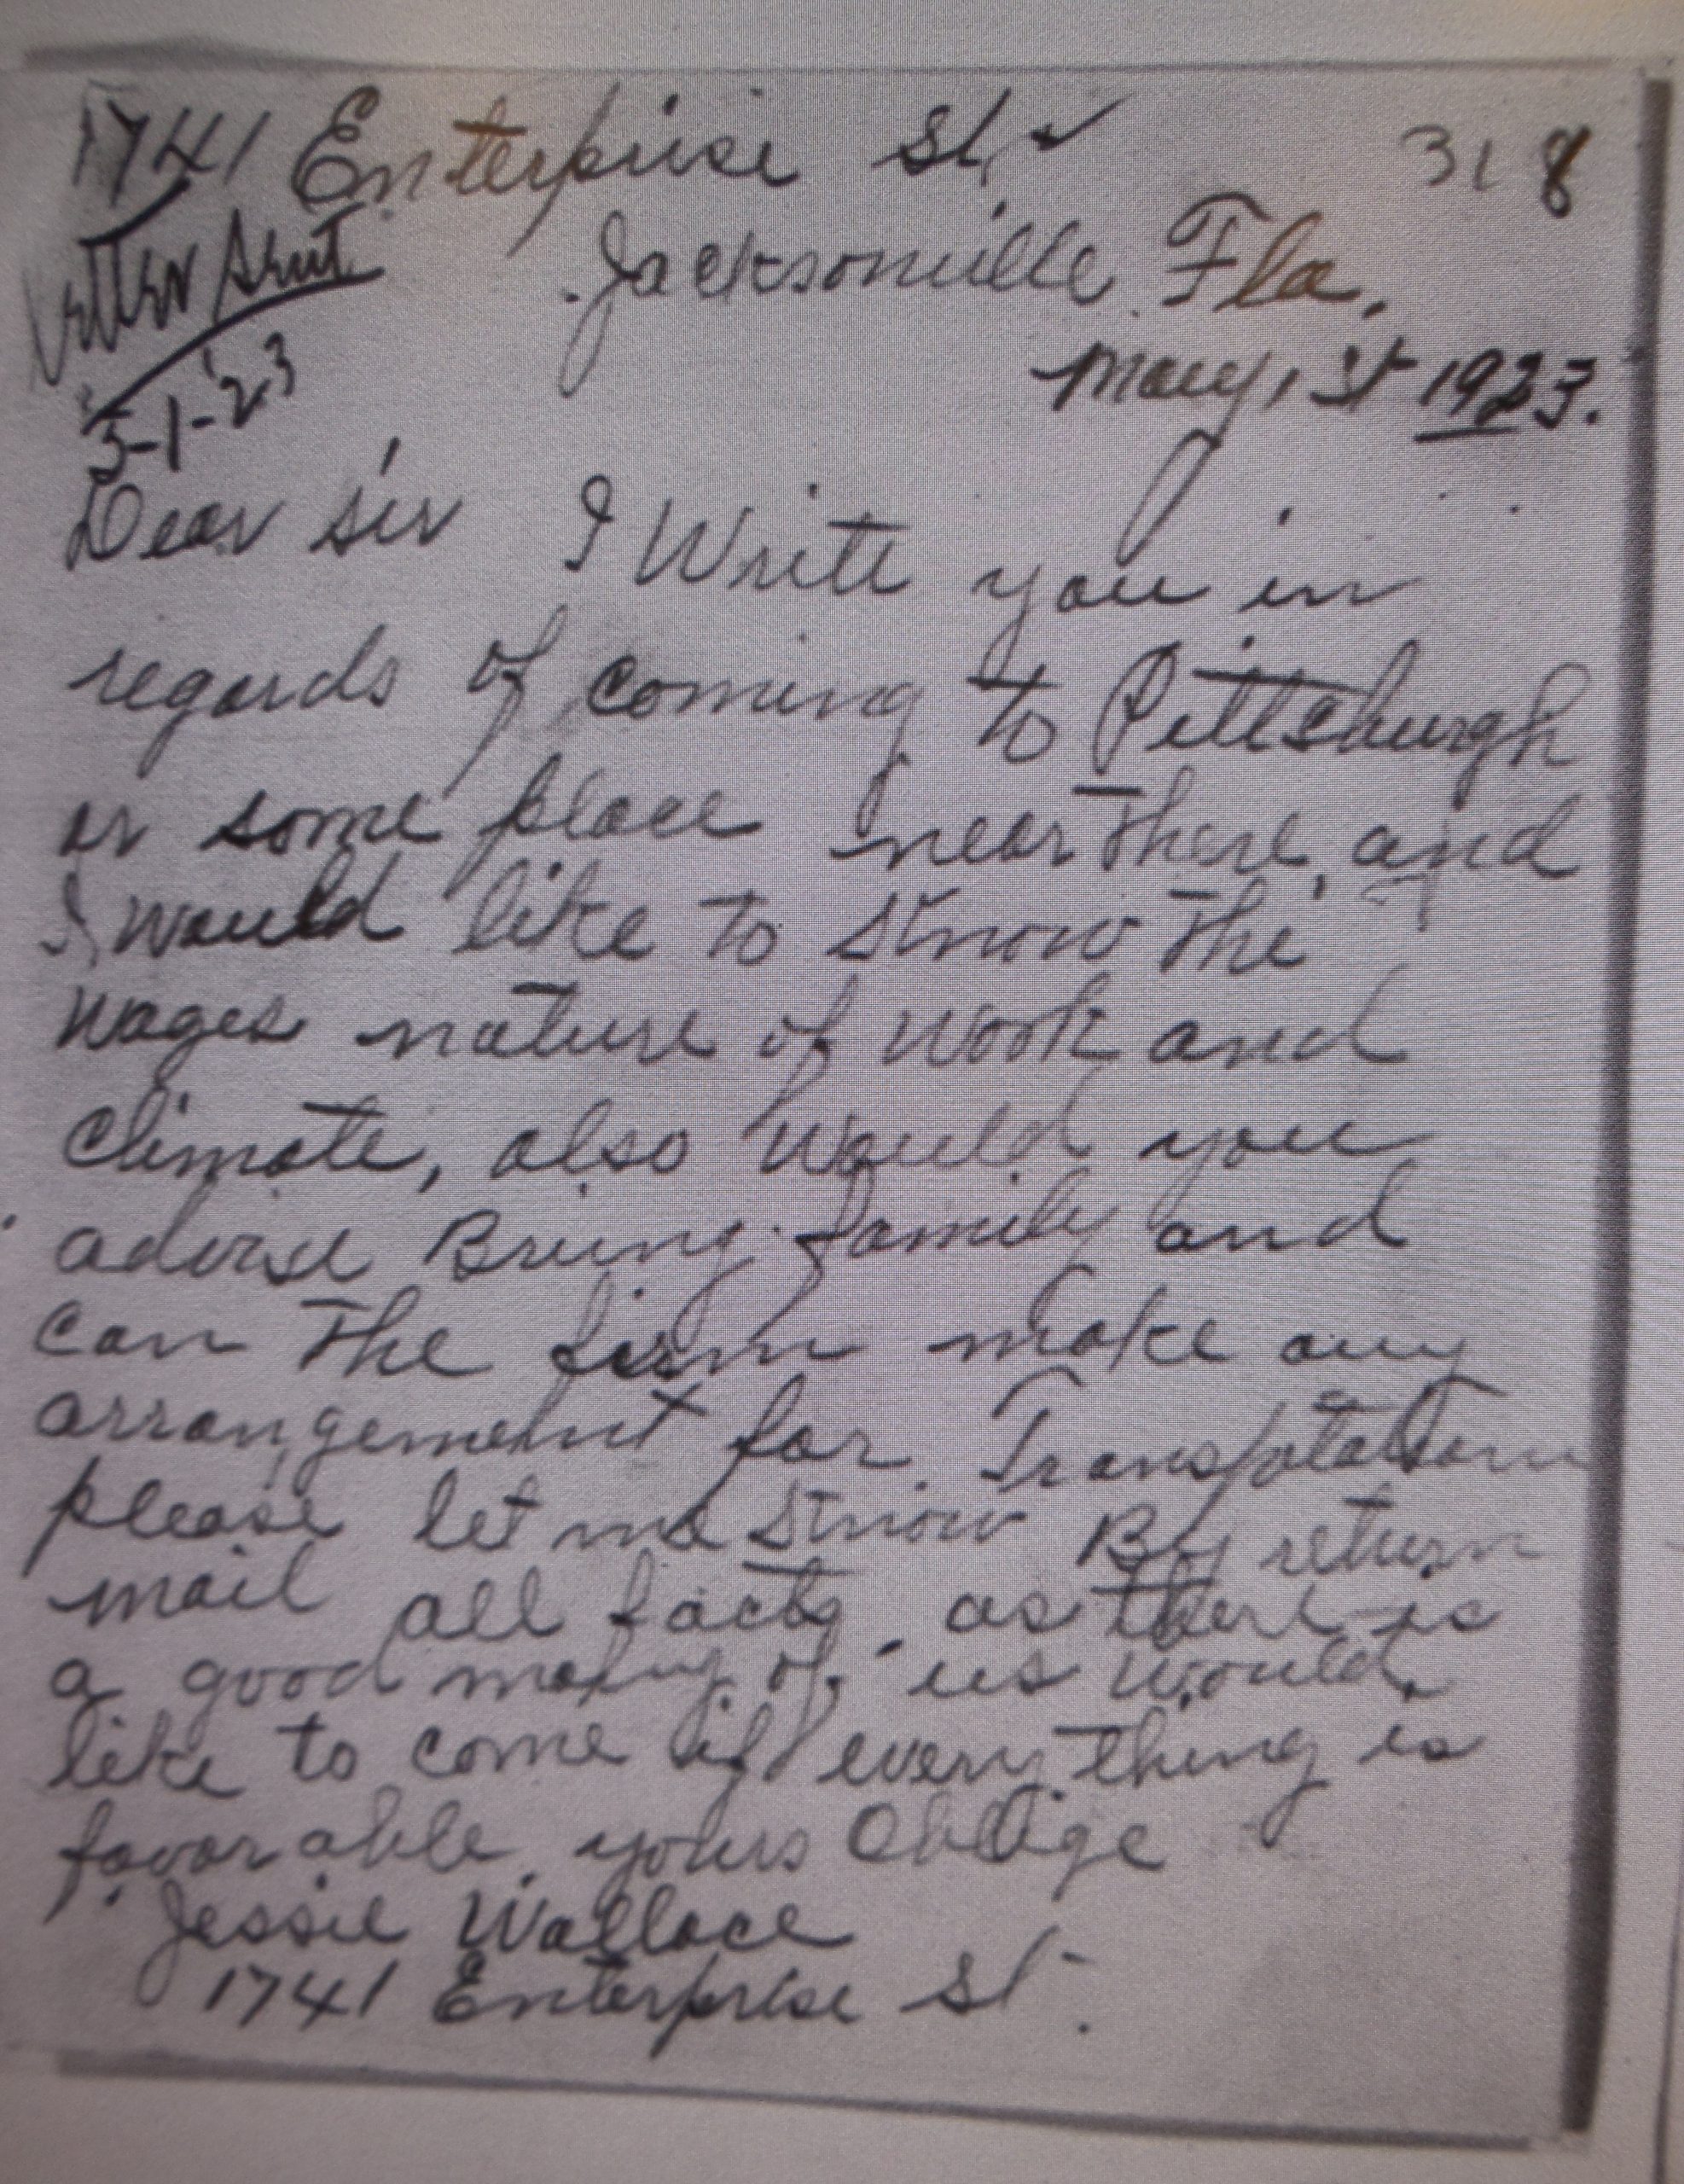 1741 Enterprise St
318
Letter Sent
5-1-23
Jacksonville Fla.
May, 1st 1923.
Dear sir I Write you in
regards of coming to Pittsburgh
or some place near there, and
I would like to Know the
wages nature of work and
climate, also would you
advise Bring family and
can the firm make any
arrangement for Transpotation
please let me Know By return
mail all facts, as there is
a good many of us would
like to come if every thing is
favorable, yours Oblige
Jessie Wallace
1741 Enterprise St.